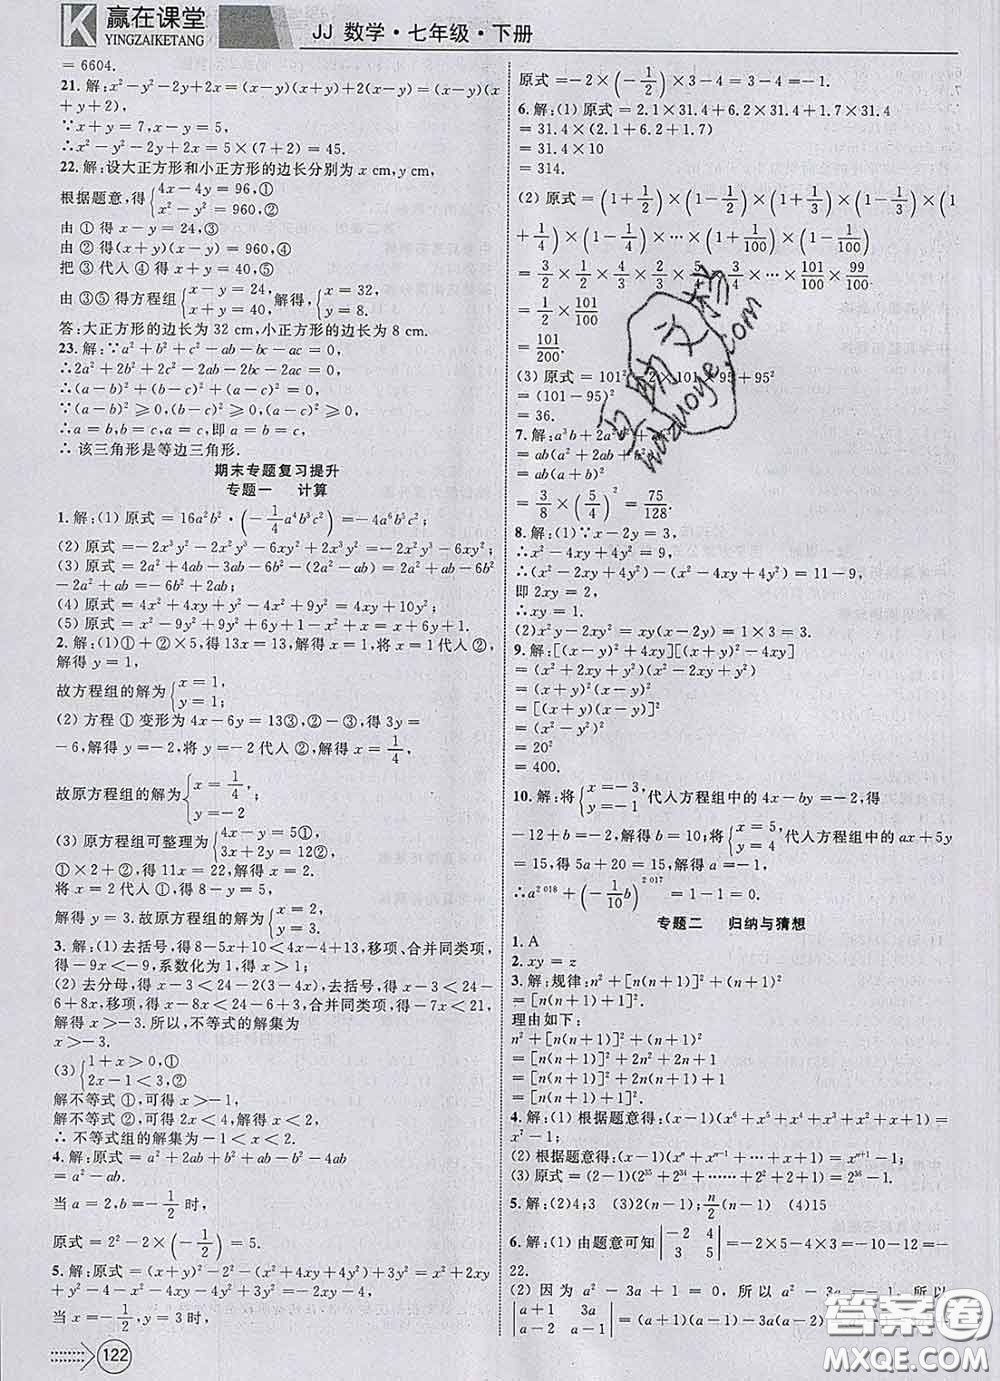 K 赢在课堂
YINGZAIKETANG
JJ 数学·七年级·下册
= 6604.
21. 解:x²-y²-2y+2x=(x-y)(x+y)+2(x-y)=(x-y)(x
+y+2),
∵x+y=7,x-y=5,
∴x²-y²-2y+2x=5×(7+2)=45.
22. 解:设大正方形和小正方形的边长分别为 x cm,y cm,
根据题意,得{4x-4y=96,①
x²-y²=960,②
由 ① 得 x-y=24,③
由 ② 得(x+y)(x-y)=960,④
把 ③ 代人 ④ 得 x+y=40,⑤
由 ③⑤ 得方程组{x-y=24, x+y=40, 解得,{x=32, y=8.
答:大正方形的边长为 32 cm,小正方形的边长为 8 cm.
23. 解:∵a²+b²+c²-ab-bc-ac=0,
∴2a²+2b²+2c²-2ab-2bc-2ac=0,
∴(a-b)²+(b-c)²+(a-c)²=0,
∵(a-b)²≥0,(b-c)²≥0,(a-c)²≥0,
∴a=b,b=c,a=c,即 a=b=c,
∴ 该三角形是等边三角形.
期末专题复习提升
专题一 计算
1. 解:(1) 原式=16a²b²·(-1/4 a⁴b³c²)=-4a⁶b⁵c²;
(2) 原式=-2x³y²-2x²y³-6xy²+2x³y²=-2x²y³-6xy²;
(3) 原式=2a²+4ab-3ab-6b²-(2a²-ab)=2a²+ab-6b²-
2a²+ab=-6b²+2ab;
(4) 原式=4x²+4xy+y²-4x²+9y²=4xy+10y²;
(5) 原式=x²-9y²+9y²+6y+1-x²+x=x+6y+1.
2. 解:(1)①+②×5,得 13x=13,解得 x=1,将 x=1 代人 ②,
解得 y=1,
故方程组的解为{x=1, y=1,
(2) 方程 ① 变形为 4x-6y=13③,②-③,得 3y=
-6,解得 y=-2,将 y=-2 代人 ②,解得 x=1/4,
故原方程组的解为{x=1/4, y=-2
(3) 原方程组可整理为{4x-y=5①, 3x+2y=12②,
①×2+②,得 11x=22,解得 x=2.
将 x=2 代人 ①,
解得 y=3. 故原方程组的解为{x=2, y=3.
3. 解:(1) 去括号,得 8-5x+10<4x+13,移项、合并同类项,
得-9x<-9,系数化为 1,得 x>1.
(2) 去分母,得 x-3<24-2(3-4x),去括号,得 x-3<24-
6+8x,移项,得 x-8x<24-6+3,合并同类项,得-7x<21.
解得 x>-3. 所以,不等式的解集为
x>-3.
(3){1+x>0,①
2x-1<3,②
解不等式 ①,可得 x>-1,
解不等式 ②,可得 2x<4,解得 x<2,
∴ 不等式组的解集为-1<x<2.
4. 解:原式=a²+2ab+b²+ab-b²-4ab
=a²-ab.
当 a=2,b=-1/2 时,
原式=2²-2×(-1/2)=5.
5. 解:原式=(x+y)²-2²-(x²+4xy+4y²)+3y²=x²+2xy
+y²-4-x²-4xy-4y²+3y²=-2xy-4,
当 x=-1/2,y=3 时,
122
原式=-2×(-1/2)×3-4=3-4=-1.
6. 解:(1) 原式=2.1×31.4+6.2×31.4+1.7×31.4
=31.4×(2.1+6.2+1.7)
=31.4×10
=314.
(2) 原式=(1+1/2)×(1-1/2)×(1+1/3)×(1-1/3)×(1
+1/4)×(1-1/4)×…×(1+1/100)×(1-1/100)
=3/2×1/2×4/3×2/3×5/4×3/4×…×101/100×99/100
=1/2×101/100
=101/200.
(3) 原式=101²-2×101×95+95²
=(101-95)²
=36.
7. 解:a³b+2a²b²+
=ab(a²+2ab+b²)
=ab(a+b)²
=3/8×(5/4)²=75/128.
8. 解:(1)∵x-2y=3,
∴x²-4xy+4y²=9,
∴(x²-2xy+4y²)-(x²-4xy+4y²)=11-9,
即 2xy=2,
∴xy=1.
(2)x²y-2xy²=xy(x-2y)=1×3=3.
9. 解:[(x-y)²+4xy][(x+y)²-4xy]
=(x²+2xy+y²)(x²-2xy+y²)
=(x+y)²(x-y)²
=[(x+y)(x-y)]²
=(x²-y²)²
=20²
=400.
10. 解:将{x=-3, y=-1, 代人方程组中的 4x-by=-2,得
-12+b=-2,解得 b=10;将{x=5, y=4 代人方程组中的 ax+5y
=15,得 5a+20=15,解得 a=-1.
∴a²⁰¹⁸+(-1/10 b)²⁰¹⁷=1-1=0.
专题二 归纳与猜想
1. A
2. xy=z
3. 解:规律:n²+[n(n+1)]²+(n+1)²
=[n(n+1)+1]².
理由如下:
n²+[n(n+1)]²+(n+1)²
=[n(n+1)]²+2n²+2n+1
=[n(n+1)]²+2n(n+1)+1
=[n(n+1)+1]².
4. 解:(1) 根据题意得:(x-1)(x⁶+x⁵+x⁴+x³+x²+x+1)=
x⁷-1;
(2) 根据题意得:(x-1)(xⁿ+xⁿ⁻¹+…+x+1)=xⁿ⁺¹-1;
(3) 原式=(2-1)(2³⁵+2³⁴+……+2²+2+1)=2³⁶-1.
5. 解:(2)4;3 (3)2(n-1);n/2(n-1) (4)15
6. 解:(1) 由题意可知|-2 4; 3 5|=-2×5-4×3=-10-12=-
22.
(2) 因为 a²-3a+1=0,所以 a²-3a=-1,所以
|a+1 3a; a-2 a-1|=(a+1)(a-1)-3a(a-2)
互助文档
huzuoye.com
答案圈
MXQE.COM